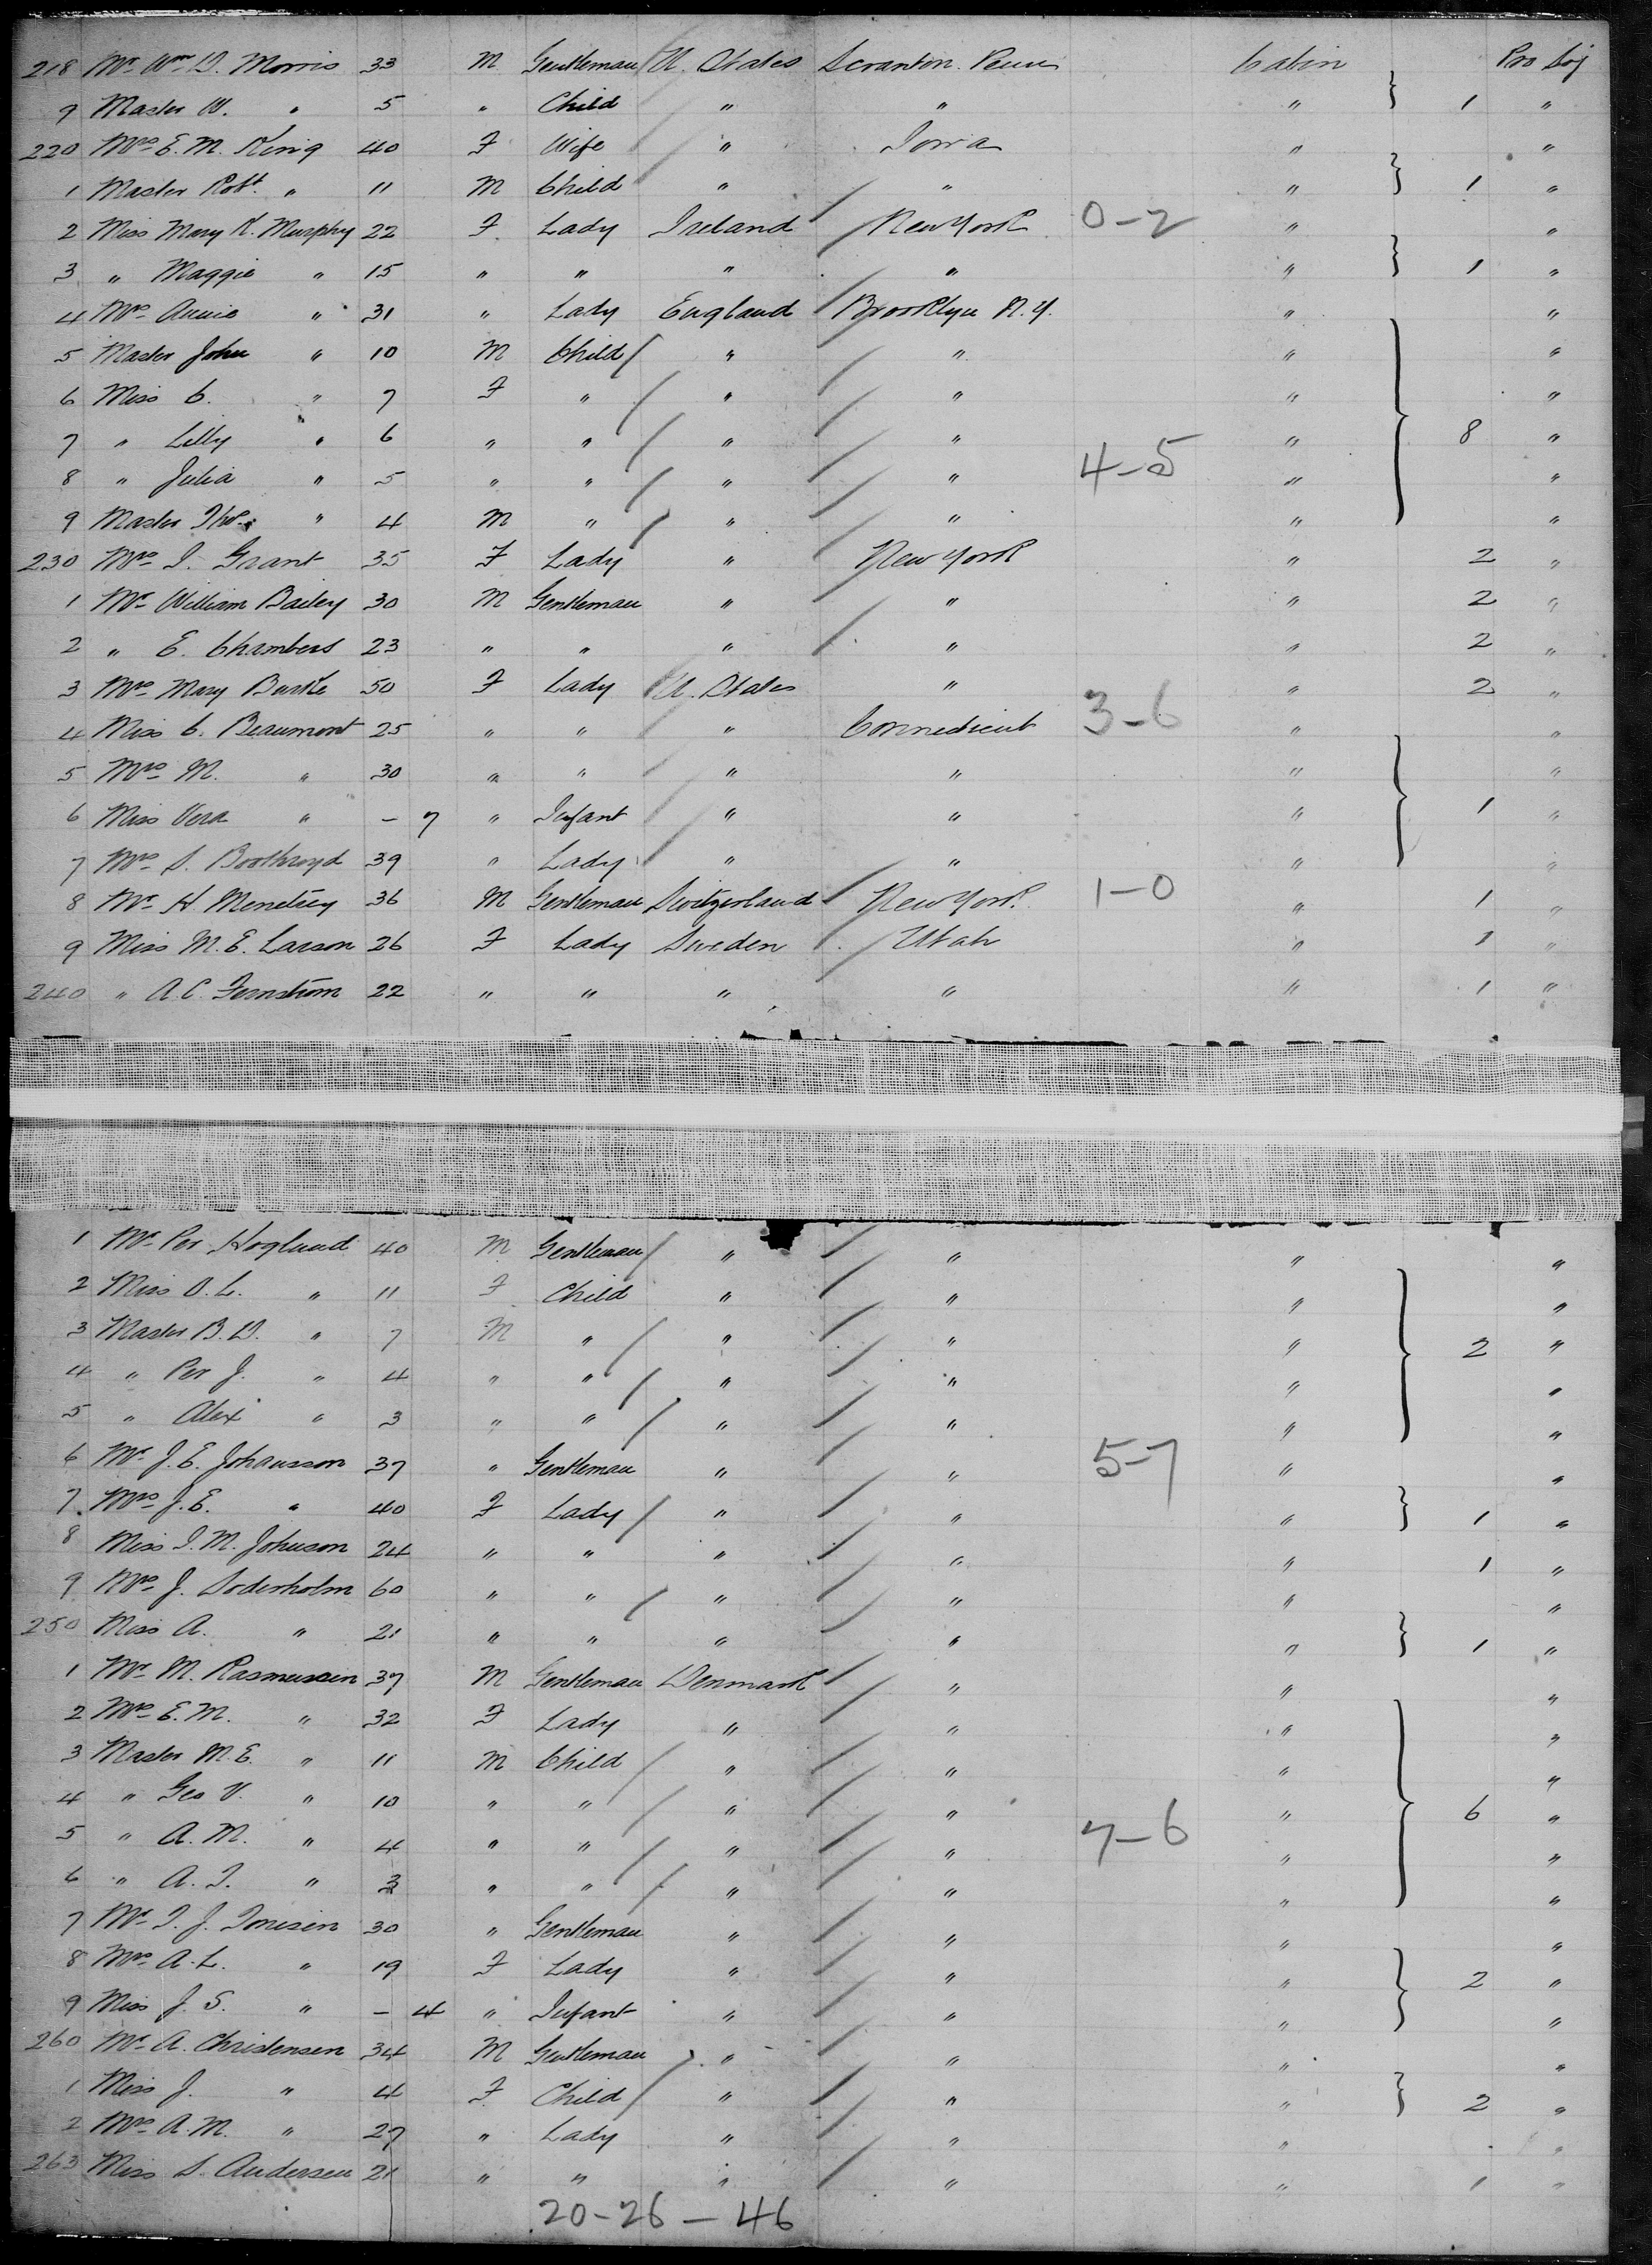 218 Mr. Wm. D. Morris 33 M Gentleman U. States Scranton Penn Cabin Pro Soj
9 Master W. " 5 " Child " " " 1 "
220 Mrs. E. M. King 40 F Wife " Iowa " "
1 Master Robt. " 11 M Child " " " 1 "
2 Miss Mary K. Murphy 22 F Lady Ireland New York 0-2 " "
3 " Maggie " 15 " " " " " 1 "
4 Mrs. Annie " 31 " Lady England Brooklyn N.Y. " "
5 Master John " 10 M Child " " " "
6 Miss C. " 7 F " " " " "
7 " Lilly " 6 " " " " " 8 "
8 " Julia " 5 " " " " 4-5 " "
9 Master Thos. " 4 M " " " " "
230 Mrs. I. Grant 35 F Lady " New York " 2 "
1 Mr. William Bailey 30 M Gentleman " " " 2 "
2 " E. Chambers 23 " " " " " 2 "
3 Mrs. Mary Burke 50 F Lady U. States " " 2 "
4 Miss C. Beaumont 25 " " " Connecticut 3-6 " "
5 Mrs. M. " 30 " " " " " "
6 Miss Vera " - 7 " Infant " " " 1 "
7 Mrs. S. Boothroyd 39 " Lady " " " "
8 Mr. H. Menetrey 36 M Gentleman Switzerland New York 1-0 " 1 "
9 Miss M. E. Larson 26 F Lady Sweden Utah " 1 "
240 " A. C. Fernstrom 22 " " " " " 1 "
1 Mr. Per Hoglund 40 M Gentleman " " " "
2 Miss O. L. " 11 F Child " " " "
3 Master B. D. " 7 M " " " " 2 "
4 " Per J. " 4 " " " " " "
5 " Alex " 3 " " " " " "
6 Mr. J. E. Johansson 37 " Gentleman " " 5-7 " "
7 Mrs. J. E. " 40 F Lady " " " 1 "
8 Miss I. M. Johnson 24 " " " " " 1 "
9 Mrs. J. Soderholm 60 " " " " " "
250 Miss A. " 21 " " " " " 1 "
1 Mr. M. Rasmussen 37 M Gentleman Denmark " " "
2 Mrs. E. M. " 32 F Lady " " " "
3 Master M. E. " 11 M Child " " " "
4 " Geo V. " 10 " " " " " 6 "
5 " A. M. " 4 " " " " 7-6 " "
6 " A. I. " 3 " " " " " "
7 Mr. I. J. 30 " Gentleman " " " "
8 Mrs. A. L. " 19 F Lady " " " 2 "
9 Miss J. S. " - 4 " Infant " " " "
260 Mr. A. Christensen 34 M Gentleman " " " "
1 Miss J. " 4 F Child " " " 2 "
2 Mrs. A. M. " 27 " Lady " " " "
263 Miss S. Andersen 21 " " " " " 1 "
20-26-46